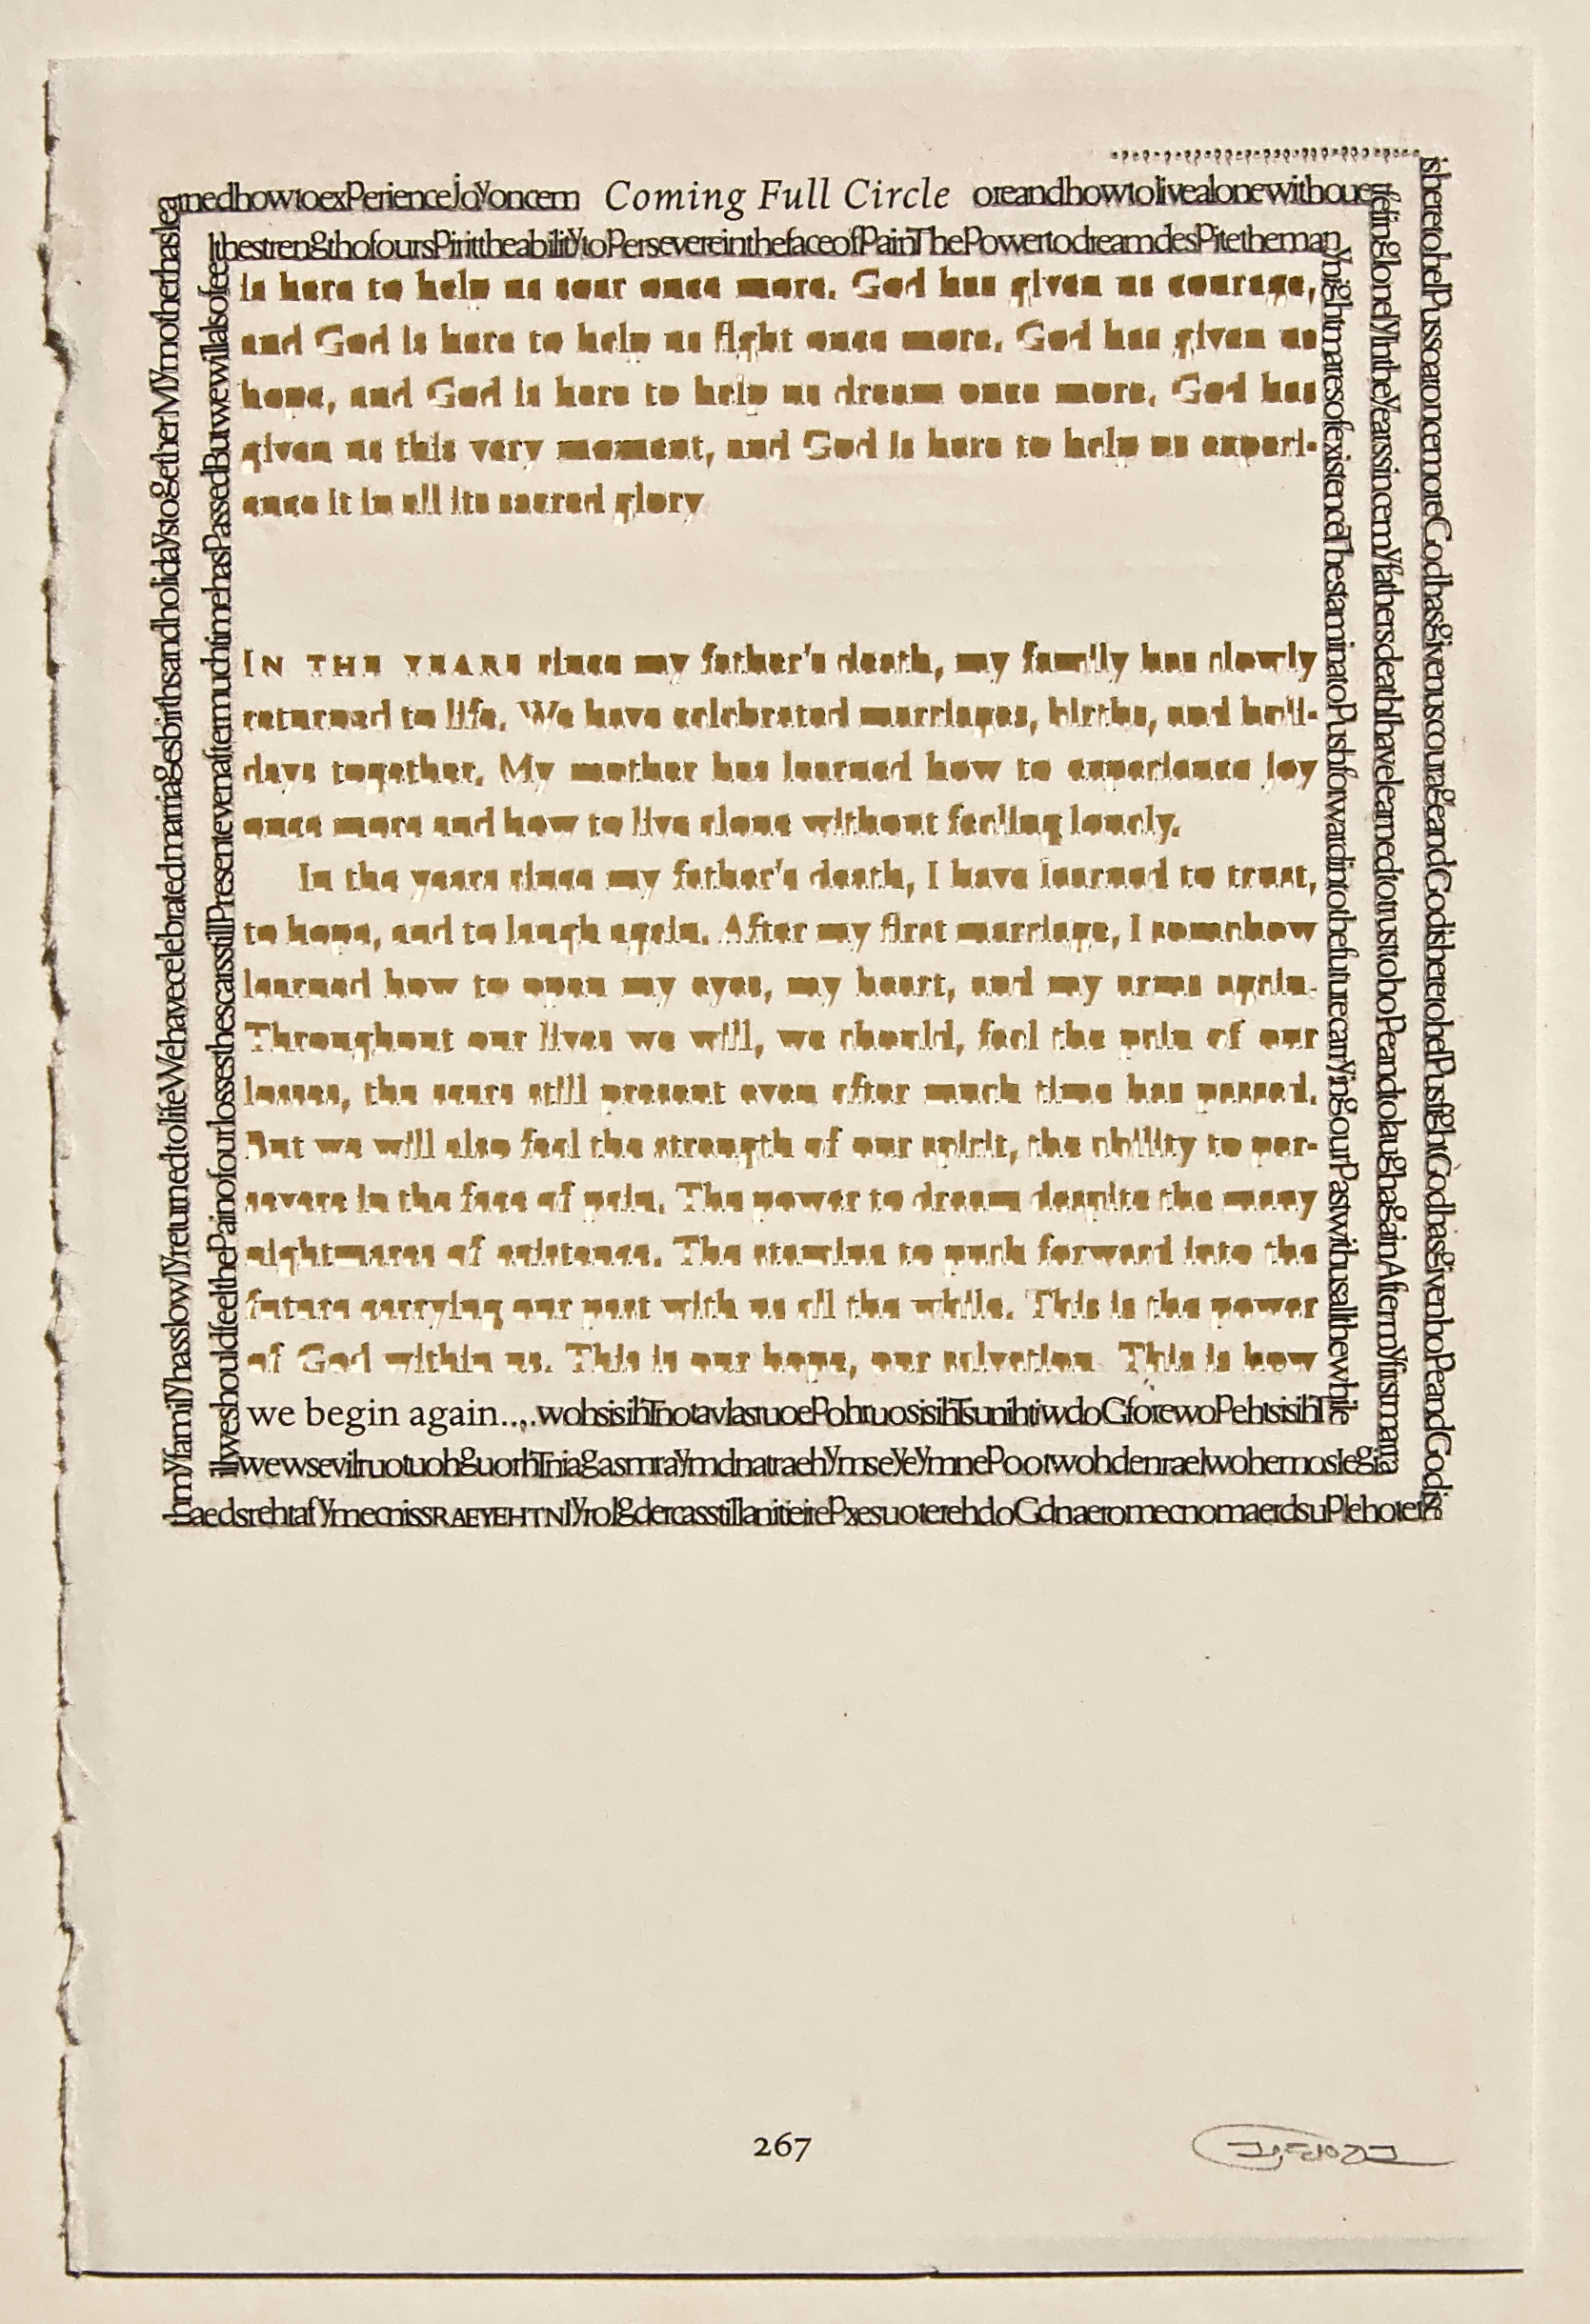 arnedhowtoexPerienceJoYoncem Coming Full Circle oreandhowtolivealonewithoutfe
ltthestrengthofoursPirittheabilitYtoPersevereinthefaceofPainThePowertodreamdesPitetheman
is here to help us soar once more. God has given us courage,
and God is here to help us fight once more. God has given us
hope, and God is here to help us dream once more. God has
given us this very moment, and God is here to help us experi-
ence it in all its sacred glory
IN THE YEARS since my father's death, my family has slowly
returned to life. We have celebrated marriages, births, and holi-
days together. My mother has learned how to experience joy
once more and how to live alone without feeling lonely.
In the years since my father's death, I have learned to trust,
to hope, and to laugh again. After my first marriage, I somehow
learned how to open my eyes, my heart, and my arms again.
Throughout our lives we will, we should, feel the pain of our
losses, the scars still present even after much time has passed.
But we will also feel the strength of our spirit, the ability to per-
severe in the face of pain. The power to dream despite the many
nightmares of existence. The stamina to push forward into the
future carrying our past with us all the while. This is the power
of God within us. This is our hope, our salvation This is how
we begin again..,.wohsisihTnotavlasruoePohruosisihTsunihtiwdoGforewoPehtsisihT
illwewsevilruotuohguorhTniagasmraYmdnatraehYmseYeYmnePootwohdenraelwohemosIegia
haedsrehtafYmecnissRAEYEHTNIYrolgdercasstillanitieirePxesuotererehdoGdnaeromecnomaerdsuPlehotereh
lhmYfamilYhasslowlYreturnedtolifeWehavecelebratedmarriagesbirthsandholidaYstogetherMYmotherhasle
illweshouldfeelthePainofourlossesthescarsstillPresentevenaftermuchtimehasPassedButwewillalsofee
YnightmaresofexistenceThestaminatoPushforwardintothefuturecarrYingourPastwithusallthewhile
felinglonelYIntheYearssincemYfathersdeathIhavelearnedtotrusttohoPeandtolaughagainAftermYfirstmarria
isheretohelPussoaroncemoreGodhasgivenuscourageandGodisheretohelPusfightGodhasgivenhoPeandGodis
267